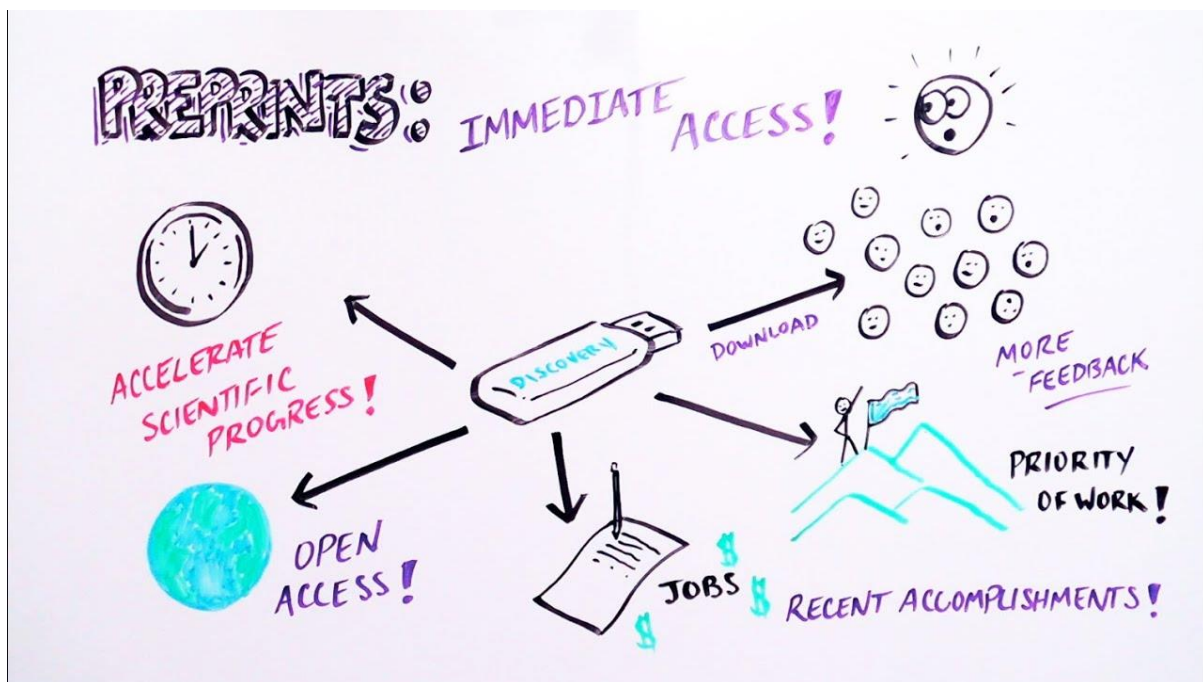 PREPRINTS: IMMEDIATE ACCESS!
ACCELERATE
SCIENTIFIC
PROGRESS!
DISCOVERY
DOWNLOAD
MORE
FEEDBACK
PRIORITY
OF WORK!
OPEN
ACCESS!
$ JOBS $
$
RECENT ACCOMPLISHMENTS!